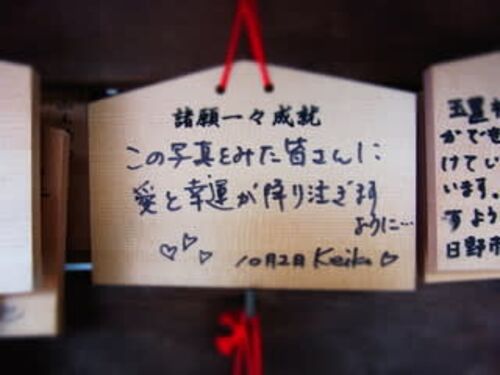 諸願一々成就
この写真をみた皆さんに
愛と幸運が降り注ぎます
ように…
10月2日 Keiko ♡
かでも
けてい
います。
すよう
日野市